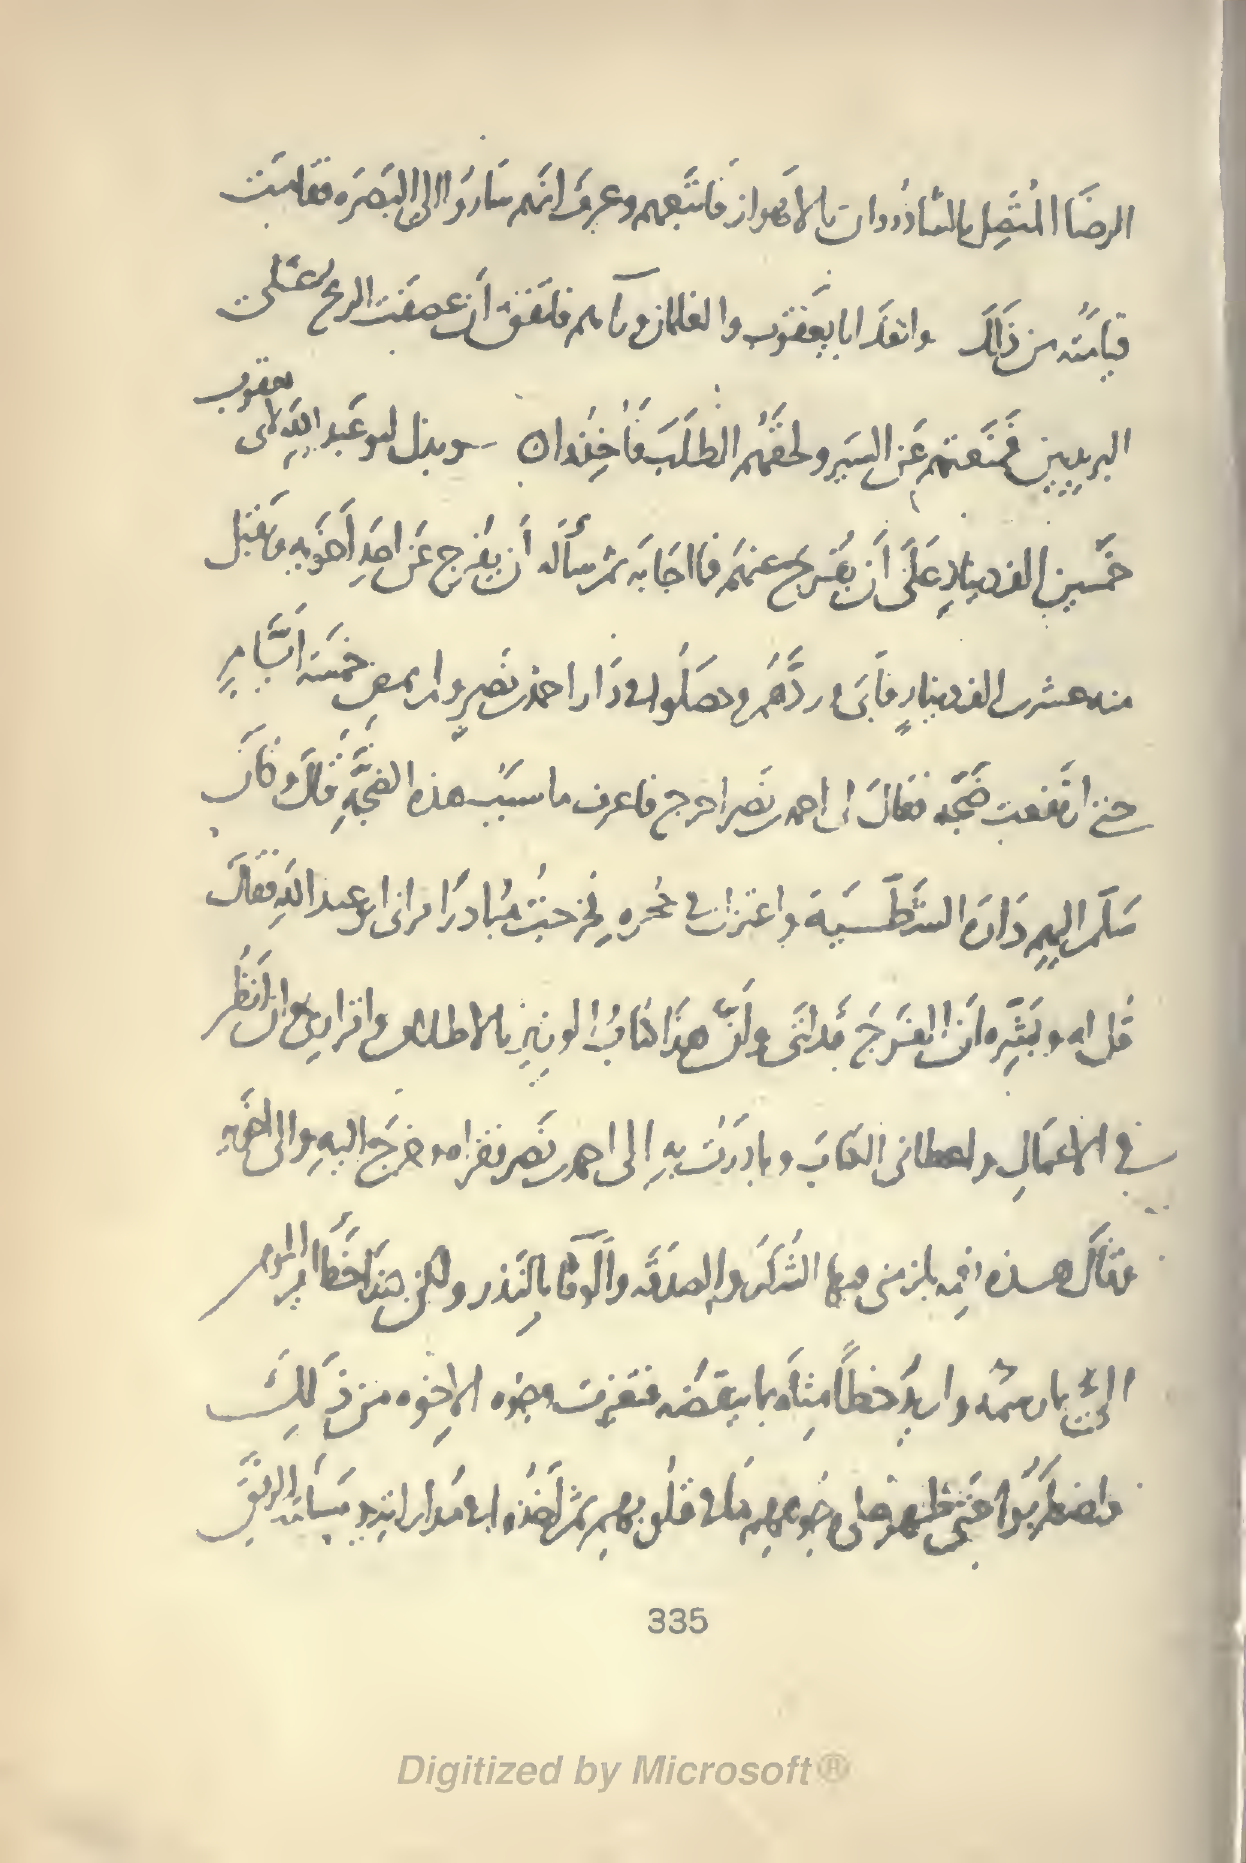 الرضا المتصل بالشاذروان بالاهواز فاتبعهم وعرف انهم ساروا الى البصره فقامت
قيامته من ذلك وانفذ ابا يعقوب والغلمان وراهم فاتفق أن عصفت الريح على
البريديين فمنعتهم عن السير ولحقهم الطلب فأخذوا وبذل ابو عبد الله لابى يعقوب
خمسين الف دينار على أن يفرج عنهم فما اجابه ثم سأله أن يفرج عن احد أخويه ويقبل
منه عشرين الف دينار فأبى وردهم وحصلوا فى دار احمد بن نصر ولم يمض خمسة أيام
حتى ارتفعت ضجه فقال لى احمد بن نصر اخرج فاعرف ما سبب هذه الضجة قال وكان
سلم اليهم داره الشطية واعتزل فى حجره فخرجت مبادرا فرانى ابو عبد الله فقال
قل له وبشره أن الفرج قد اتى وأن هذا كتاب الوزير بالاطلاق واقرارى وان أنظر
فى الاعمال واعطانى الكتاب وبادرت به الى احمد بن نصر فقراه وخرج اليه والى اخويه
فقال هذه نعمه يلزمنى فيها الشكر والصدقه والوفا بالنذر ولكن هذا خط امير المومنين
الى بما رسمه واريد خطا مثله بما ينقضه فتغيرت وجوه الاخوه من ذلك
واضطربوا حتى ظهر فى وجوههم ما فى قلوبهم ثم أخذوا فى مداراته ومسألته الرفق
335
Digitized by Microsoft®